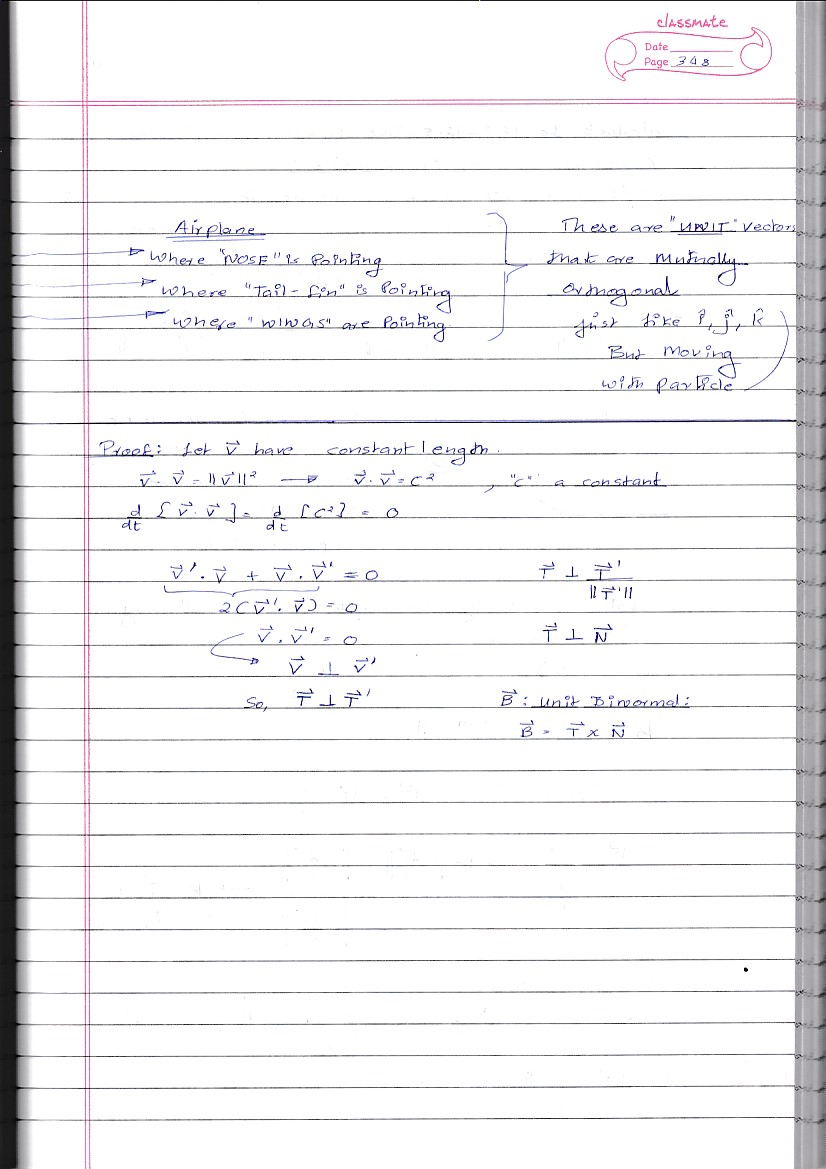 classmate
Date
Page 348
Airplane
Where "NOSE" is Pointing
Where "Tail-fin" is Pointing
Where "WINGS" are Pointing.
These are "UNIT" Vectors
that are Mutually
Orthogonal
just like î, ĵ, k̂
But Moving
with particle
Proof: Let v⃗ have constant length.
v⃗ · v⃗ = ||v⃗||² → v⃗ · v⃗ = c² , "c" a constant
d/dt [v⃗ · v⃗] = d/dt [c²] = 0
v⃗' · v⃗ + v⃗ · v⃗' = 0
2(v⃗' · v⃗) = 0
v⃗ · v⃗' = 0
v⃗ ⊥ v⃗'
So, T⃗ ⊥ T⃗'
T⃗ ⊥ T⃗'/||T⃗'||
T⃗ ⊥ N⃗
B⃗ : Unit Binormal:
B⃗ = T⃗ × N⃗